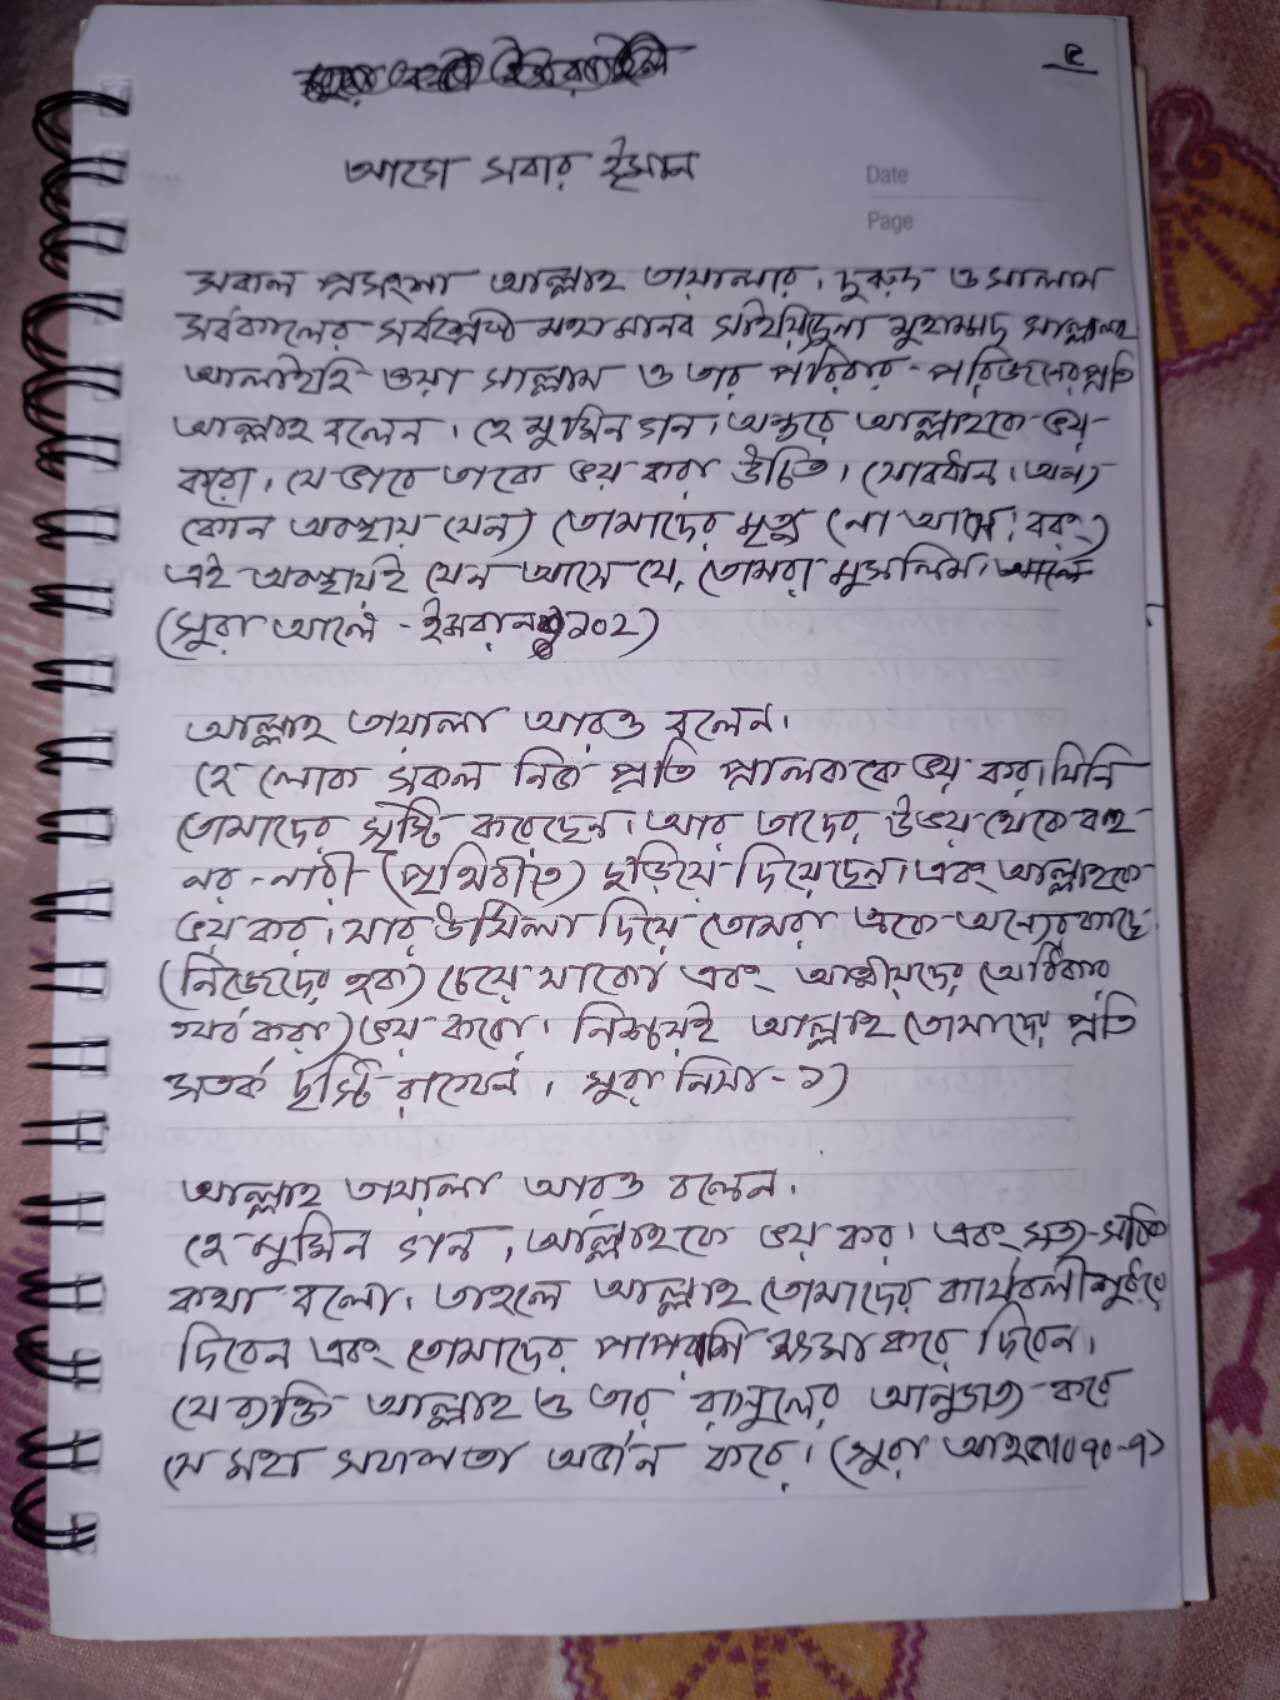 ২
আগে সবার ঈমান
Date
Page
সকাল প্রসংশা আল্লাহ তায়ালার। দুরুদ ও সালাম
সর্বকালের সর্বশ্রেষ্ঠ মহামানব সাইয়িদুনা মুহাম্মাদ সাল্লাল্লাহু
আলাইহি ওয়া সাল্লাম ও তার পরিবার-পরিজনের প্রতি
আল্লাহ বলেন। হে মুমিন গন। অন্তরে আল্লাহকে ভয়
করো। যে ভাবে তাকে ভয় করা উচিত। (সাবধান। অন্য
কোন অবস্থায় যেন) তোমাদের মৃত্যু (না আসে। বরং)
এই অবস্থায়ই যেন আসে যে, তোমরা মুসলিম।
(সুরা আলে-ইমরান ১০২)
আল্লাহ তায়ালা আরও বলেন।
হে লোক সকল নিজ প্রতি পালককে ভয় কর। যিনি
তোমাদের সৃষ্টি করেছেন। আর তাদের উভয় থেকে বহু
নর-নারী (পৃথিবীতে) ছড়িয়ে দিয়েছেন। এবং আল্লাহকে
ভয় কর। যার উসিলা দিয়ে তোমরা একে অন্যের কাছে
(নিজেদের হক) চেয়ে থাকো এবং আত্মীয়দের অধিকার
খর্ব করা) ভয় করো। নিশ্চয়ই আল্লাহ তোমাদের প্রতি
সতর্ক দৃষ্টি রাখেন। সুরা নিসা-১)
আল্লাহ তায়ালা আরও বলেন।
হে মুমিন গন, আল্লাহকে ভয় কর। এবং সত্য-সঠিক
কথা বলো। তাহলে আল্লাহ তোমাদের কার্যবলী শুধরে
দিবেন এবং তোমাদের পাপরাশি ক্ষমা করে দিবেন।
যে ব্যক্তি আল্লাহ ও তার রাসুলের আনুগত্য করে
সে মহা সফলতা অর্জন করে। (সুরা আহযাব ৭০-৭১